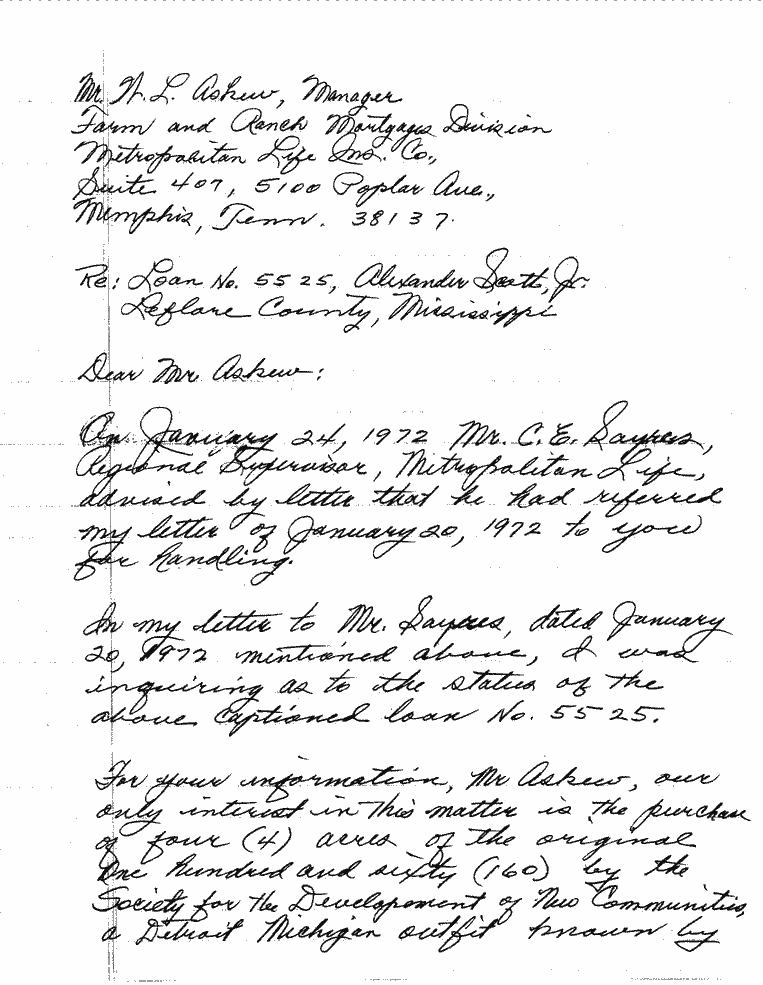 Mr. W. L. Askew, Manager
Farm and Ranch Mortgages Division
Metropolitan Life Ins. Co.,
Suite 407, 5100 Poplar Ave.,
Memphis, Tenn. 38137.
Re: Loan No. 5525, Alexander Scott, Jr.
Leflore County, Mississippi
Dear Mr. Askew:
On January 24, 1972 Mr. C. E. Sayres,
Regional Supervisor, Metropolitan Life,
advised by letter that he had referred
my letter of January 20, 1972 to you
for handling.
In my letter to Mr. Sayres, dated January
20, 1972 mentioned above, I was
inquiring as to the status of the
above captioned loan No. 5525.
For your information, Mr Askew, our
only interest in this matter is the purchase
of four (4) acres of the original
One hundred and sixty (160) by the
Society for the Development of New Communities,
a Detroit Michigan outfit known by